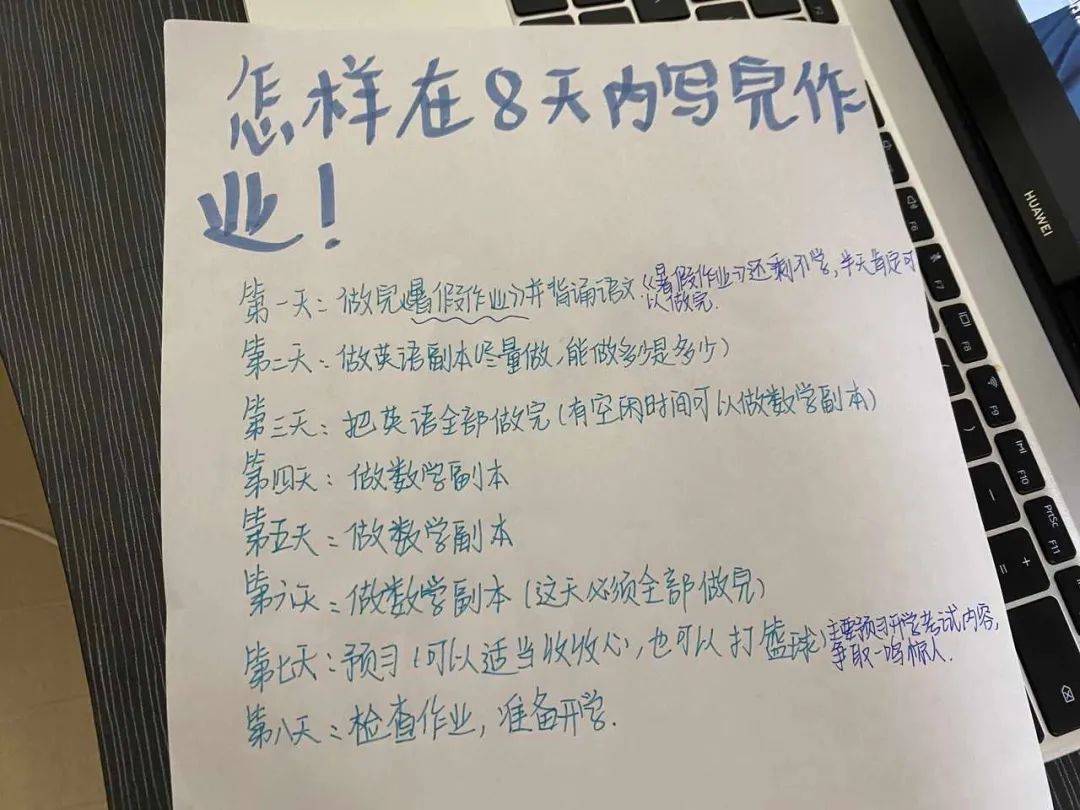 怎样在8天内写完作
业！
第一天：做完《暑假作业》并背诵语文《暑假作业》还剩不学，半天肯定可
以做完.
第二天：做英语副本(尽量做，能做多少是多少)
第三天：把英语全部做完(有空闲时间可以做数学副本)
第四天：做数学副本
第五天：做数学副本
第六天：做数学副本(这天必须全部做完)
第七天：预习(可以适当收收心，也可以打篮球)主要预习开学考试内容，
争取一鸣惊人.
第八天：检查作业，准备开学.
HUAWEI
F6
F7
F8
F9
F10
PrtSc
F11